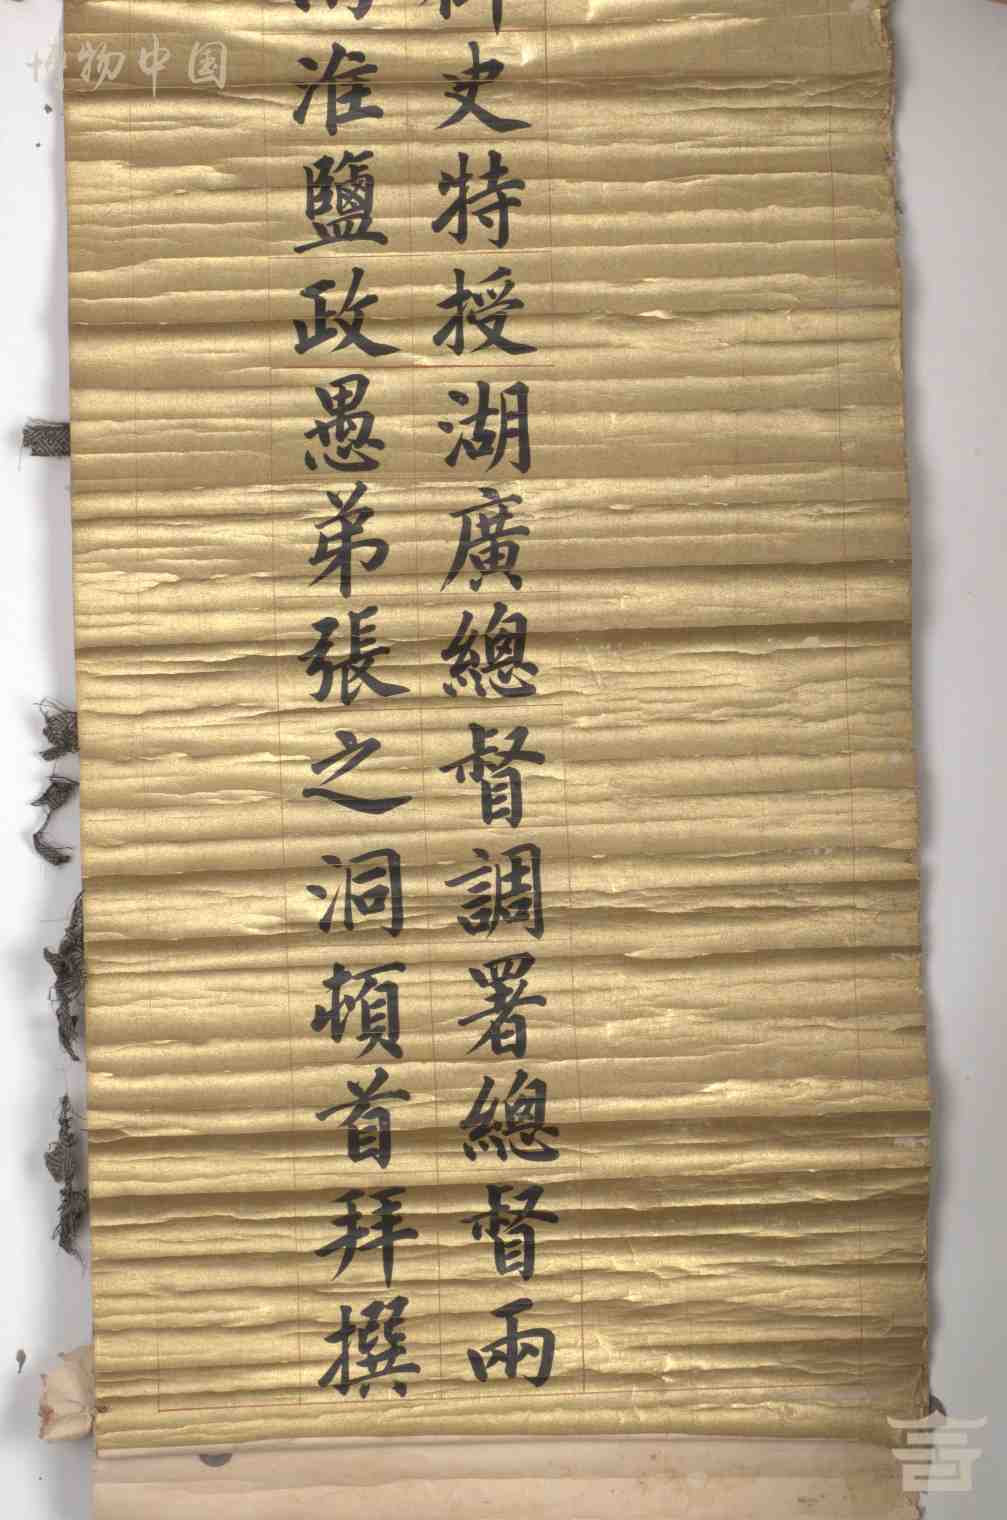 史特授湖廣總督調署總督兩
淮鹽政愚弟張之洞頓首拜撰
博物中国